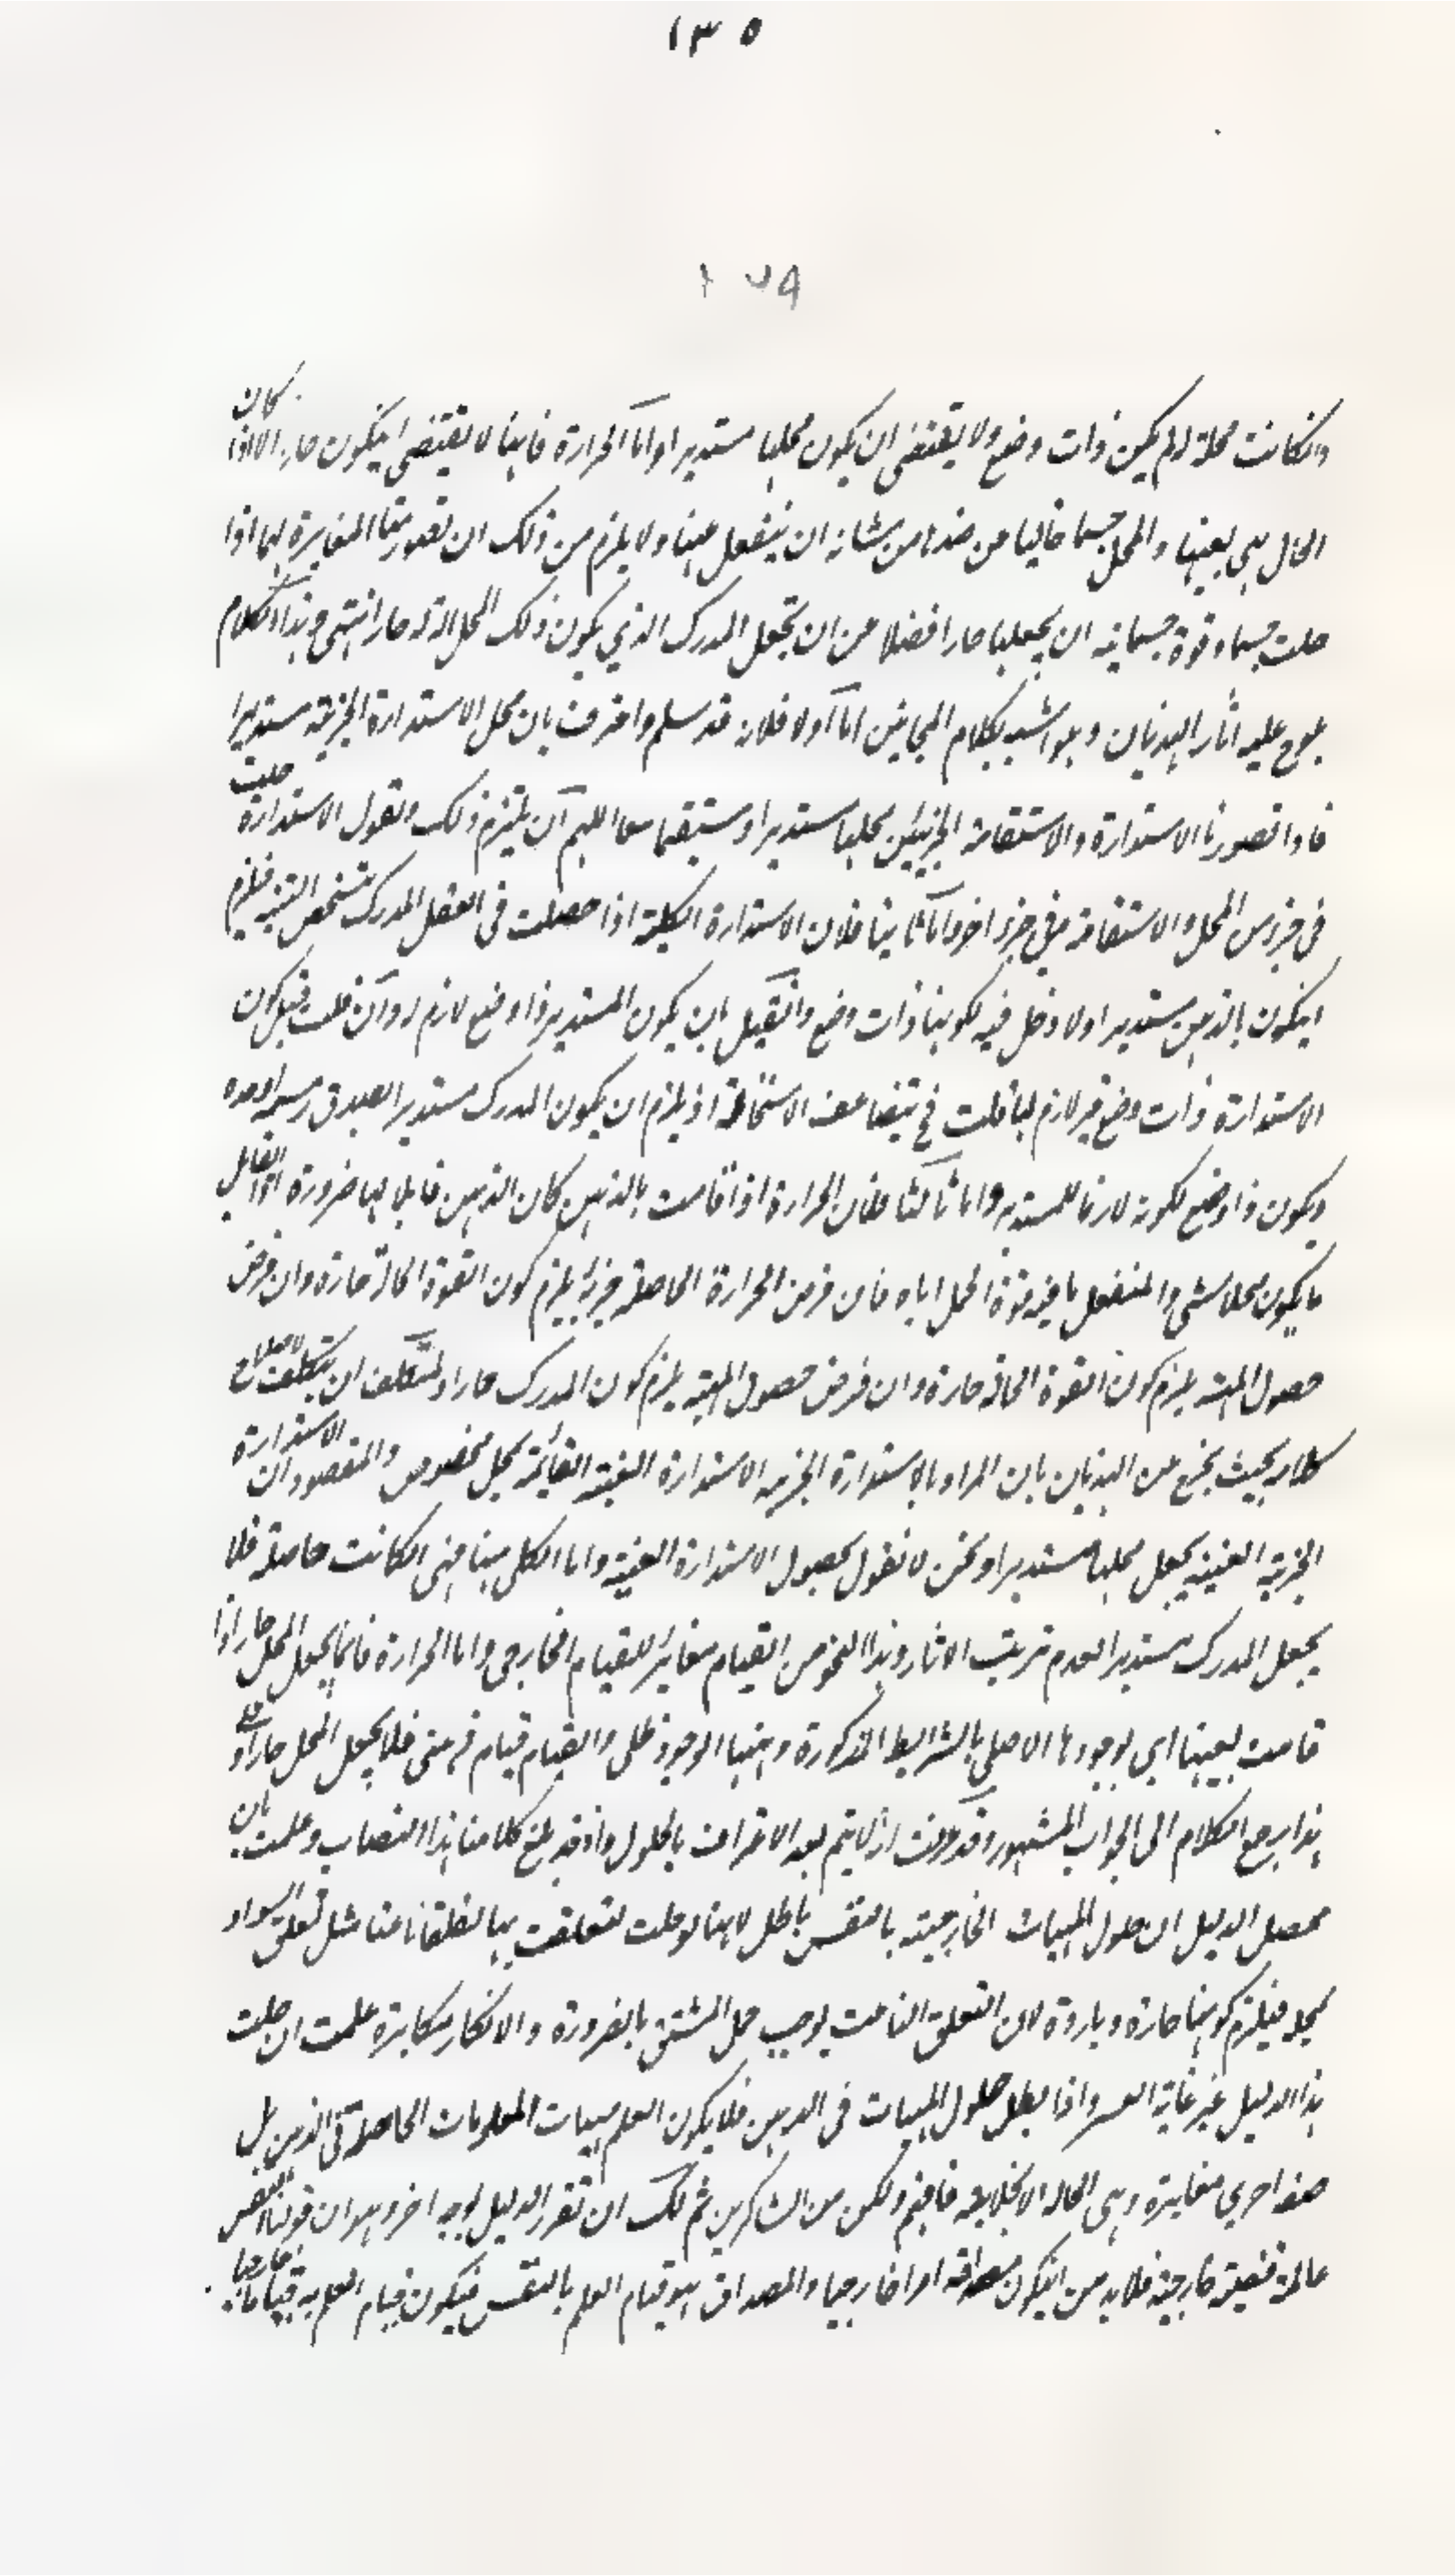 ١٣٥
وانكانت محلة له لم يكن ذات وضع ولا يقتضى ان يكون محلها مستديرا واما الحرارة فانها لا يقتضى ان يكون حارا الا اذا كان
الحال هى بعينها والمحل جسما خاليا عن ضدها من شانه ان ينفعل عنها ولا يلزم من ذلك ان تصورتها المغايرة لها اذا
حلت جسما وقوة جسمانية ان يجعلها حارا فضلا عن ان تجعل المدرك الذي يكون ذلك المحل الة له حارا انتهى وهذا الكلام
يلوح عليه اثار الهذيان وهو اشبه بكلام المجانين اما اولا فلانه قد سلم واعترف بان محل الاستدارة الجزئية مستديرا
فاذا تصورنا الاستدارة والاستقامة الجزئيتين محلها مستديرا ومستقيما معا اللهم ان يلتزم ذلك ويقول الاستدارة حلت
فى جزء من المحل والاستقامة فى جزء اخر واما ثانيا فلان الاستدارة الكلية اذا حصلت فى العقل المدرك بتشخص البتة فيلزم
ان يكون الذهن مستديرا ولا دخل فيه لكونها ذات وضع وان قيل بان يكون المستدير ذا وضع لازم له وان قلت فبكون
الاستدارة ذات وضع غير لازم لها قلت فح يتضاعف الاستحالة اذ يلزم ان يكون المدرك مستديرا لصدق رسمه او حده
ويكون ذا وضع لكونه لازما للمستدير واما ثالثا فلان الحرارة اذا قامت بالذهن كان الذهن قابلا لها ضرورة اذ القابل
ما يكون محلا لشىء والمنفعل ما فيه قوة الحمل اياه فان فرض الحرارة الحاصلة جزئية يلزم كون القوة الحالة حارة وان فرض
حصول المهية يلزم كون القوة الحالة حارة وان فرض حصول المهية يلزم كون المدرك حارا ولمتكلف ان يتكلف لاصلاح
كلامه بحيث يخرج عن الهذيان بان المراد بالاستدارة الجزئية الاستدارة العينية القائمة بمحل مخصوص والمقصود ان الاستدارة
الجزئية العينية يجعل محلها مستديرا ونحن لا نقول بحصول الاستدارة العينية واما الكلى منها فهى انكانت حاصلة فلا
يجعل المدرك مستديرا لعدم ترتب الاثار وهذا النحو من القيام مغاير للقيام الخارجى واما الحرارة فانها يجعل المحل حارا اذا
قامت بعينها اى بوجودها الاصلى بالشرايط المذكورة وههنا الوجود ظلى والقيام قيام ذهنى فلا يجعل المحل حارا وعلى
هذا يرجع الكلام الى الجواب المشهور وقد عرفت انه لا يتم بعد الاعتراف بالحلول واذ قد بلغ كلامنا هذا النصاب وعلمت بان
محصل الدليل ان حلول المهيات الخارجية بالنفس باطل لانها لو حلت لتعلقت بها تعلقا ناعتا مثل تعلق السواد
بمحله فيلزم كونها حارة وباردة لان التعلق الناعت يوجب حمل المشتق بالضرورة والانكار مكابرة علمت ان حلت
هذا الدليل غير غاية العسر واذا بطل حلول المهيات فى الذهن فلا يكون العلم مهيات المعلومات الحاصلة فى الذهن بل
صفة اخرى مغايرة وهى الحالة الانجلائية فافهم ولكن من الشاكرين ثم لك ان تقرر الدليل بوجه اخر وهو ان قولنا النفس
عالمة قضية خارجية فلا بد من ان يكون مصداقه امرا خارجيا والمصداق هو قيام العلم بالنفس فيكون قيام العلم به قياما خارجيا